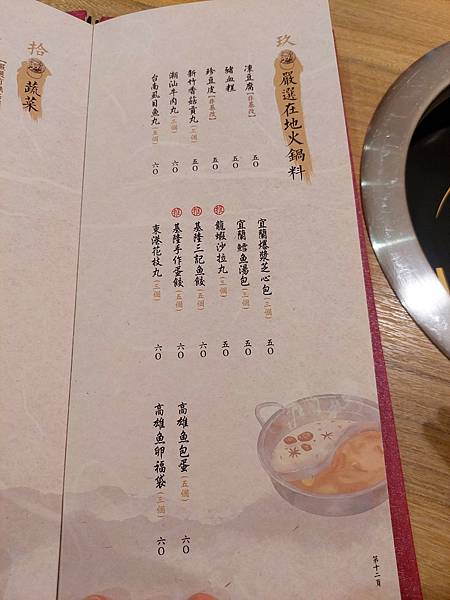 玖
嚴選在地火鍋料
凍豆腐【非基改】 五〇
豬血糕 五〇
珍豆皮【非基改】 五〇
新竹香菇貢丸(三個) 五〇
潮汕牛肉丸(三個) 六〇
台南虱目魚丸(五個) 六〇
宜蘭爆漿芝心包(三個) 五〇
宜蘭鱈魚湯包(三個) 五〇
龍蝦沙拉丸(三個) 五〇
基隆三記魚餃(五個) 六〇
基隆手作蛋餃(五個) 六〇
東港花枝丸(三個) 六〇
高雄魚包蛋(五個) 六〇
高雄魚卵福袋(三個) 六〇
第十二頁
拾
蔬菜